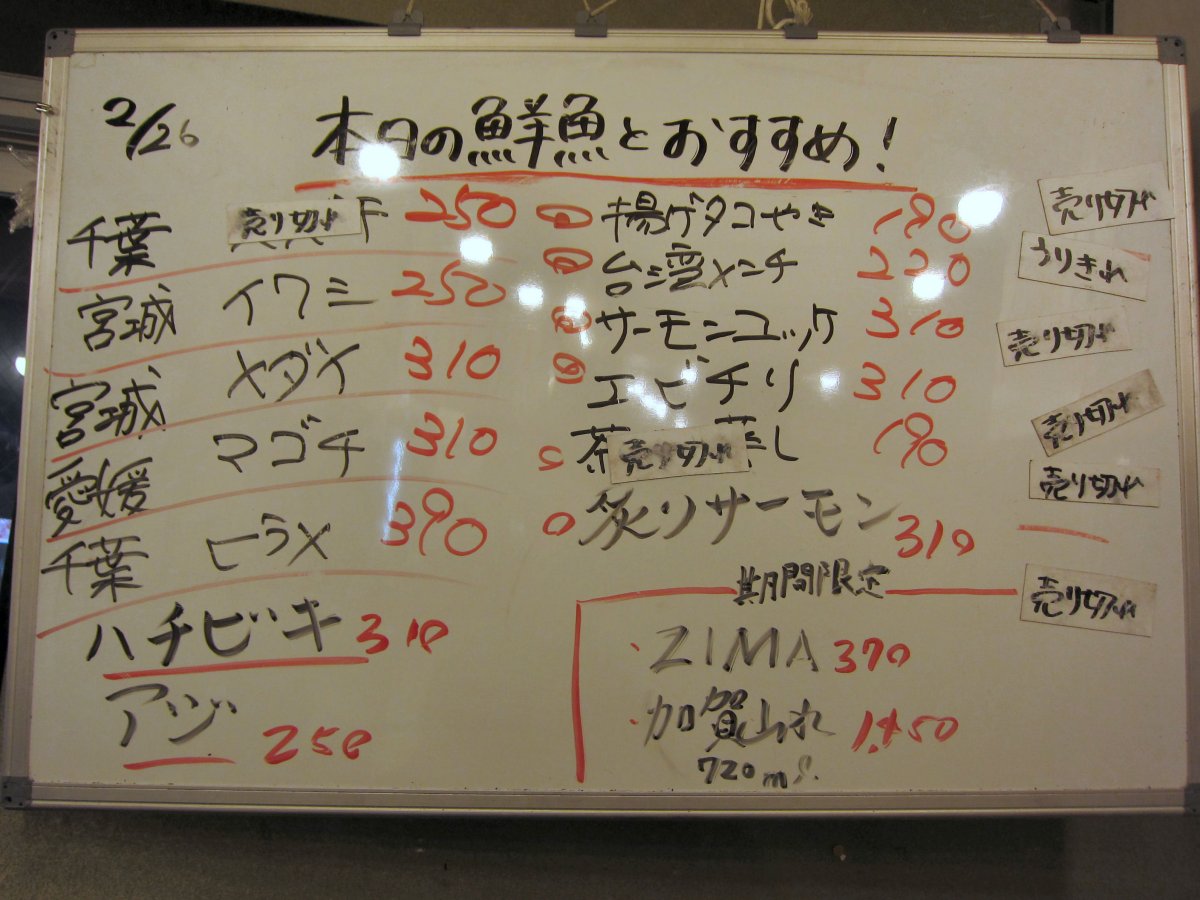 2/26
本日の鮮魚とおすすめ!
千葉 売り切れ 250
宮城 イワシ 250
宮城 メダイ 310
愛媛 マゴチ 310
千葉 ヒラメ 390
ハチビキ 310
アジ 250
揚ゲタコやき 190
台湾メンチ 220
サーモンユッケ 310
エビチリ 310
茶 売り切れ 蒸し 190
炙りサーモン 310
期間限定
・ZIMA 370
・加賀 1,450
720ml.
売り切れ
うりきれ
売り切れ
売り切れ
売り切れ
売り切れ